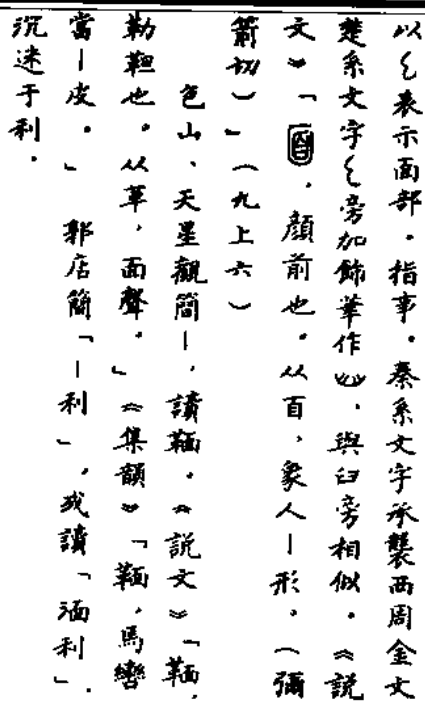 以乀表示面部。指事。秦系文字承襲西周金文
楚系文字乀旁加飾筆作，與臼旁相似。《說
文》「，顏前也。从𦣻，象人｜形。（彌
箭切）」（九上六）
包山、天星觀簡｜，讀䩏。《說文》「䩏，
勒靼也。从革，面聲。」《集韻》「䩏，馬轡
當｜皮。」郭店簡「｜利」，或讀「湎利」．
沉迷于利．